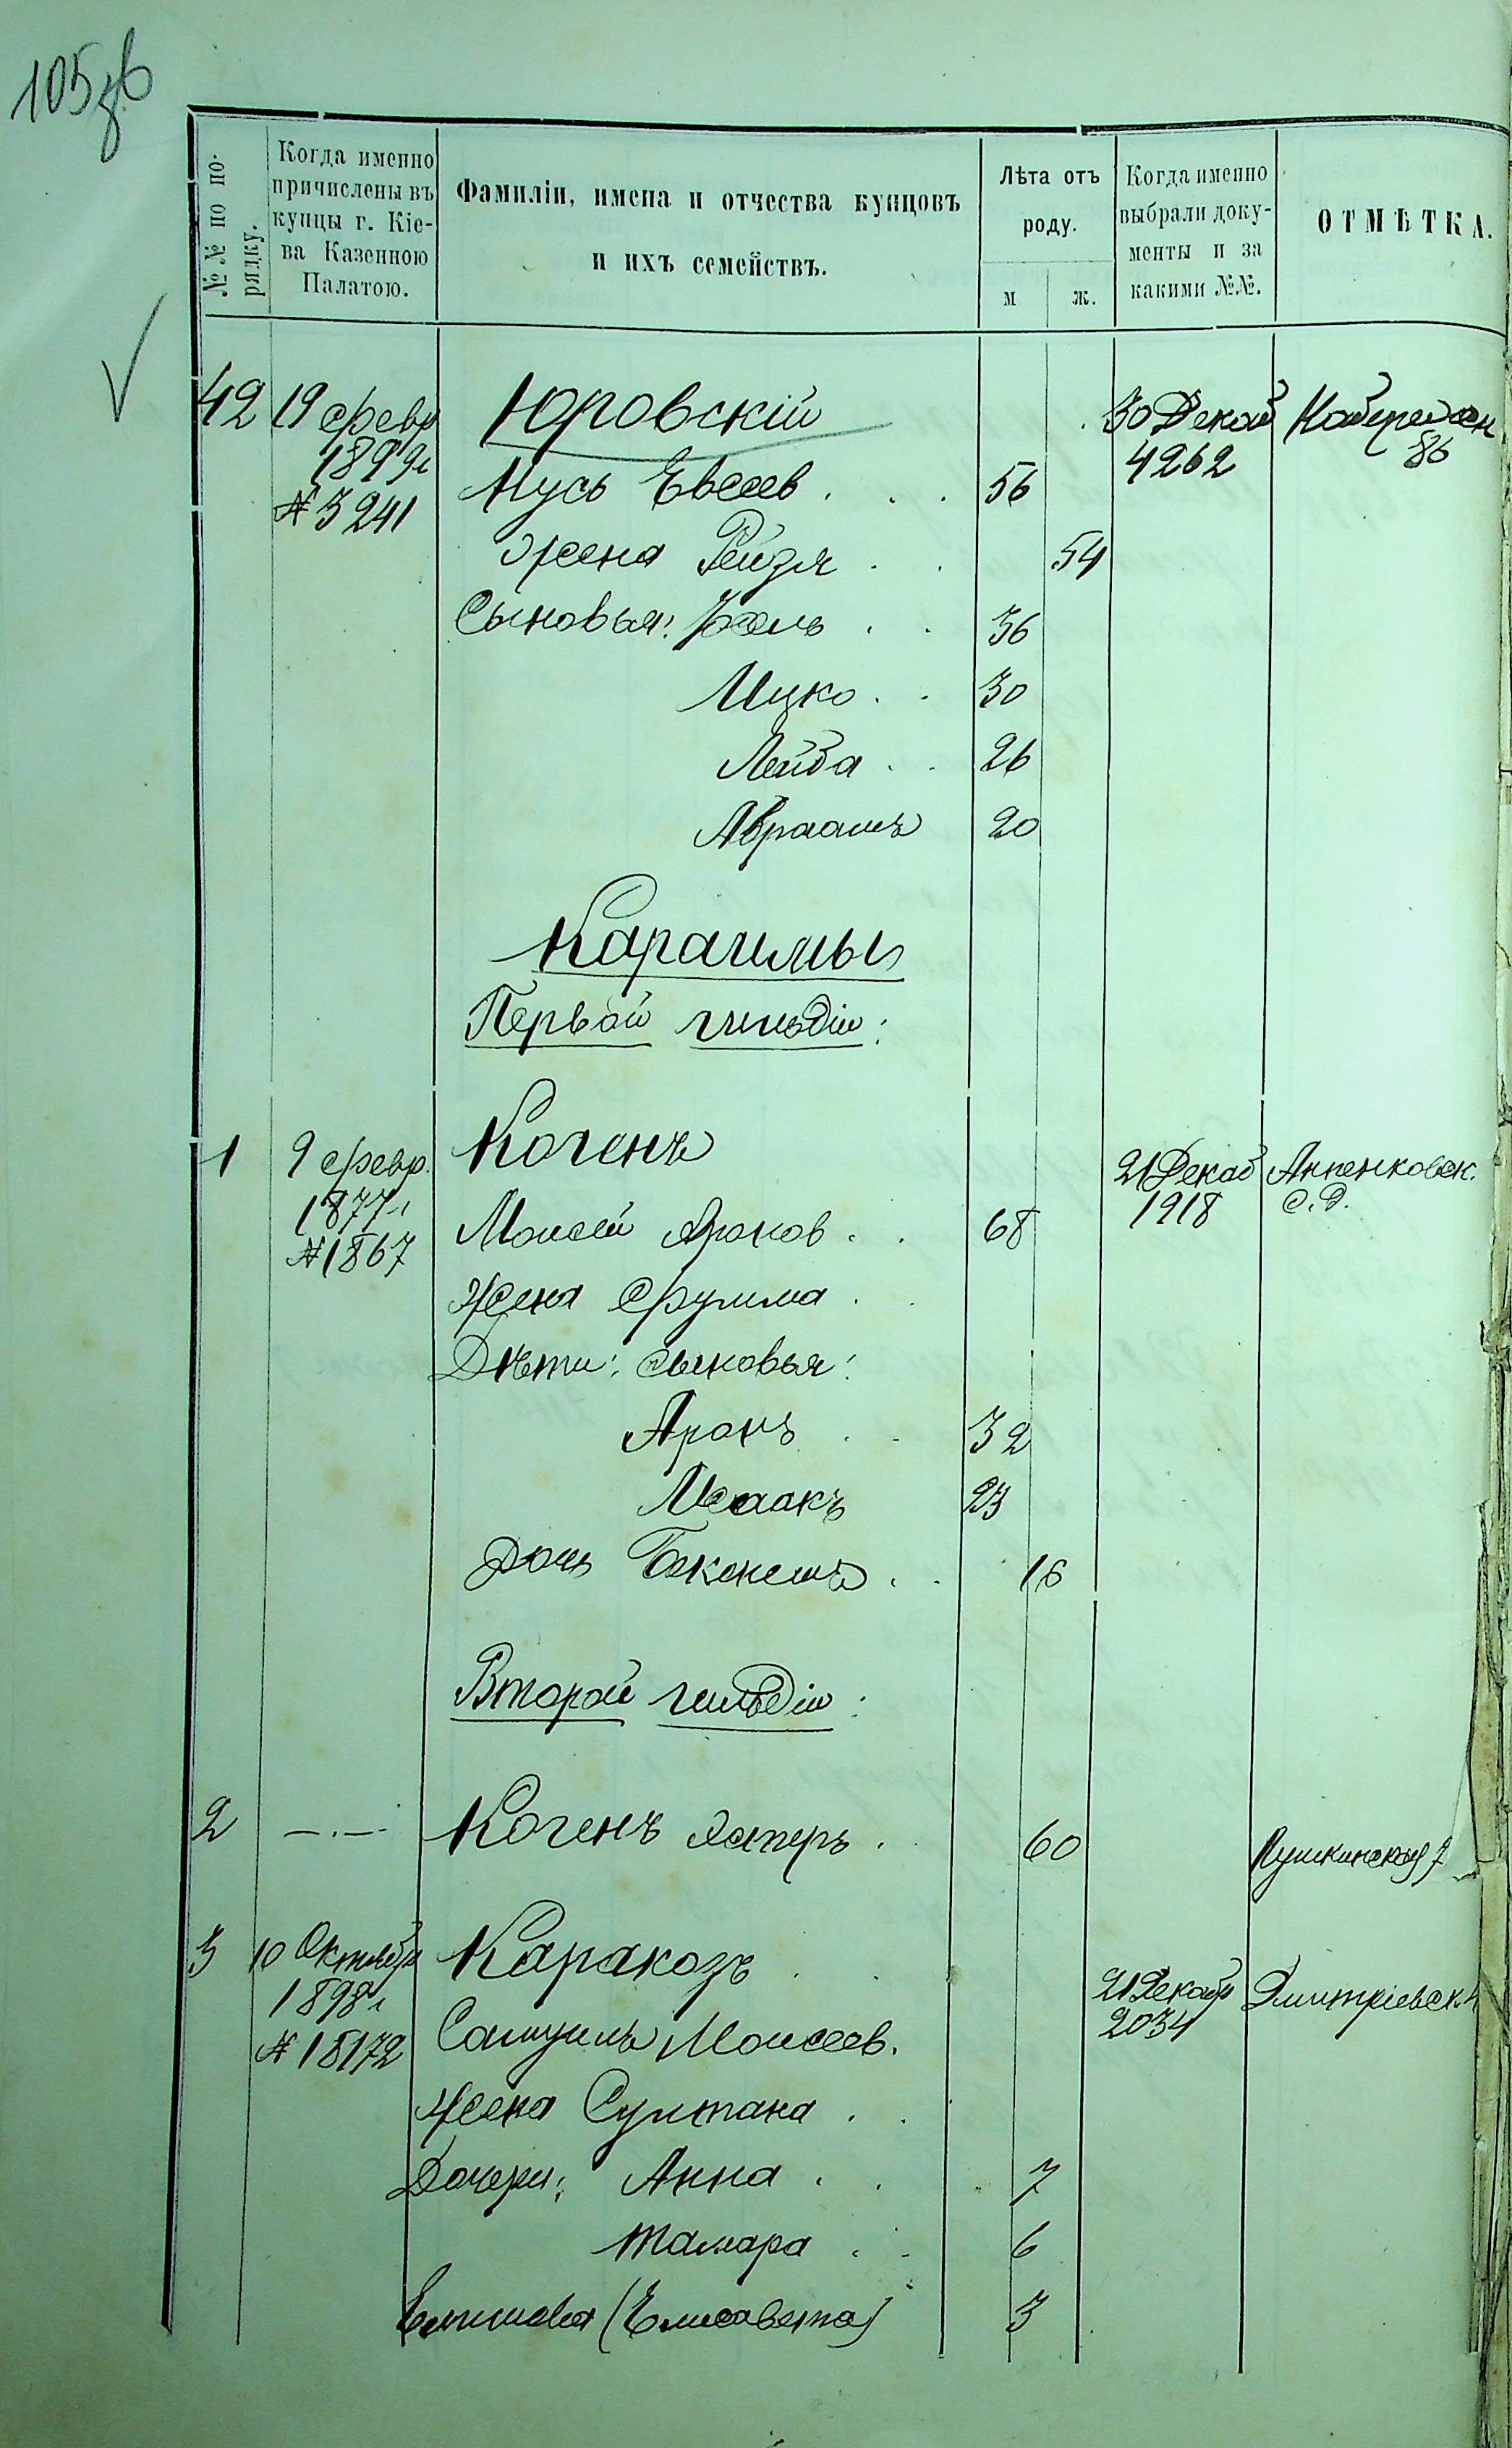 105 зв
№№ по по-
рядку.
Когда именно
причислены въ
купцы г. Кіе-
ва Казенною
Палатою.
Фамиліи, имена и отчества купцовъ
и ихъ семействъ.
Лѣта отъ
роду.
м ж.
Когда именно
выбрали доку-
менты и за
какими №№.
ОТМѢТКА.
42 19 февр Юровскій 30 Декаб
1899г 4262 86
№ 3241 Мусь Евсеев . . . 56
Жена Рейзя . . 54
Сыновья: . . 36
Ицко . . 30
Лейба . . 26
Авраамъ 20
Караимы
Первой гильдіи:
1 9 февр. Когенъ 21 Декаб Анненковск.
1877г 1918 с. д.
№1867 Моисей Аронов . . 68
Жена Фумма .
Дѣти: сыновья:
Аронъ . . 32
Исаакъ 23
Дочь Бекенешъ . . 16
Второй гильдіи:
2 —.— Когенъ Эстеръ . 60 Пушкинская 7
3 10 Октября Каракозъ . . 21 Декабр Дмитріевск. 4
1898г 2034
№ 15172 Самуилъ Моисеев.
Жена Султана . .
Дочери: Анна . . 7
Тамара . . 6
(Елисавета) 3